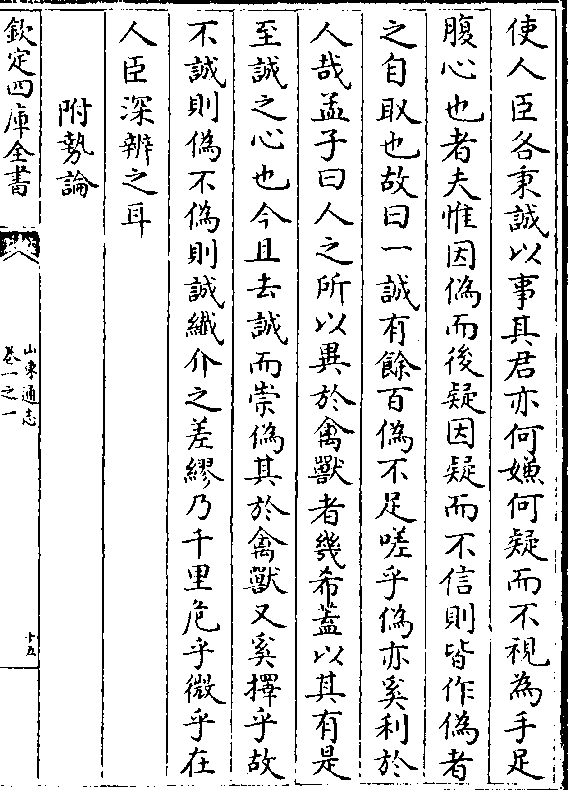 使人臣各秉誠以事其君亦何嫌何疑而不視為手足
腹心也者夫惟因偽而後疑因疑而不信則皆作偽者
之自取也故曰一誠有餘百偽不足嗟乎偽亦奚利於
人哉孟子曰人之所以異於禽獸者幾希蓋以其有是
至誠之心也今且去誠而崇偽其於禽獸又奚擇乎故
不誠則偽不偽則誠纖介之差繆乃千里危乎微乎在
人臣深辨之耳
附勢論
欽定四庫全書
山東通志
卷一之一
十五